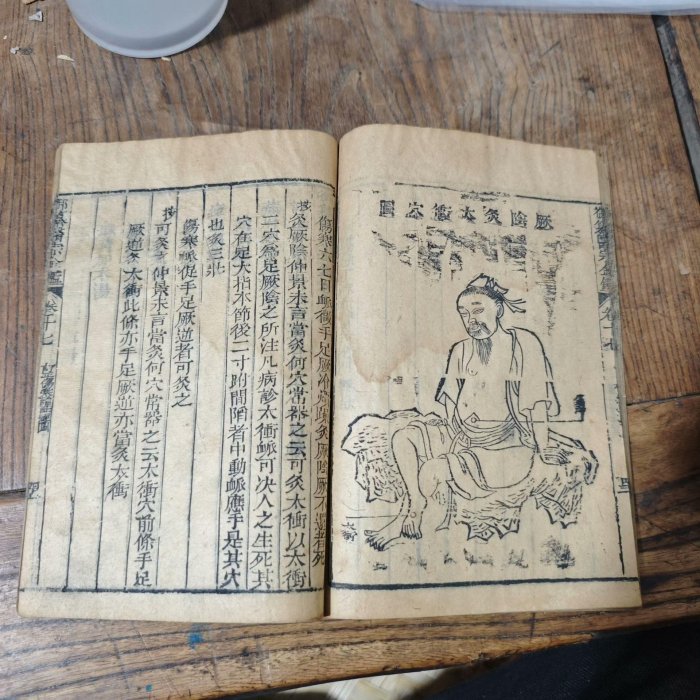 厥陰灸太衝穴圖
太衝
傷寒六七日脈微手足厥冷煩躁灸厥陰厥不還者死
按灸厥陰仲景未言當灸何穴常器之云可灸太衝以太衝
二穴為足厥陰之所注凡病診太衝脈可决人之生死其
穴在足大指本節後二寸跗間陷者中動脈應手是其穴
也灸三壯
傷寒脈促手足厥逆者可灸之
按可灸之仲景未言當灸何穴常器之云太衝穴前條手足
厥逆灸太衝此條亦手足厥逆亦當灸太衝
御纂醫宗金鑑 卷十七